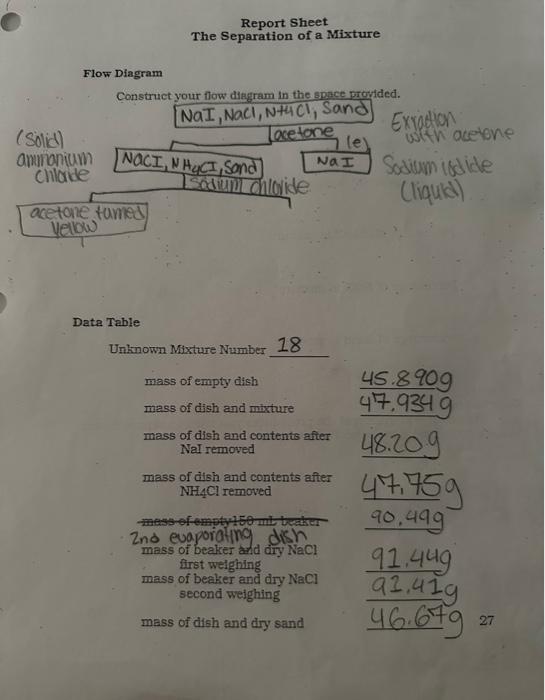 Report Sheet
The Separation of a Mixture
Flow Diagram
Construct your flow diagram in the space provided.
NaI, NaCl, NH4Cl, Sand
acetone
(e)
Exraction
with acetone
(Solid)
ammonium
chloride
NaCI, NH4CI, Sand
NaI
Sodium iodide
(liquid)
Sodium chloride
acetone turned
yellow
Data Table
Unknown Mixture Number 18
mass of empty dish 45.890g
mass of dish and mixture 47.934g
mass of dish and contents after
NaI removed 48.20g
mass of dish and contents after
NH4Cl removed 47.75g
mass of empty 150 mL beaker 90.49g
2nd evaporating dish
mass of beaker and dry NaCl
first weighing 91.44g
mass of beaker and dry NaCl
second weighing 91.41g
mass of dish and dry sand 46.67g 27